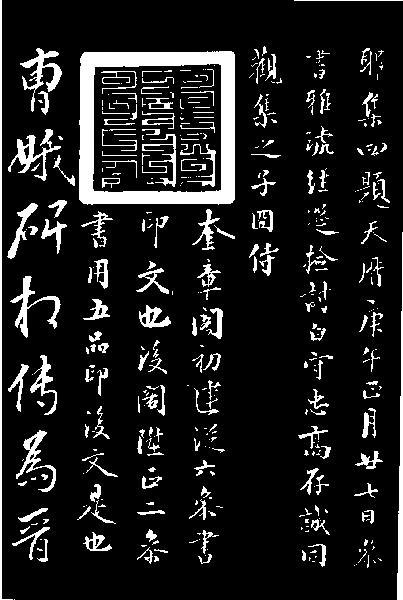 耶集四題天曆庚午正月廿七日參
書雅琥經筵撿討白守忠高存誠同
觀集之子同侍
奎章閣初建從六參書
印文也後閣陞正二參
書用五品印後文是也
曹娥碑相傳為晉